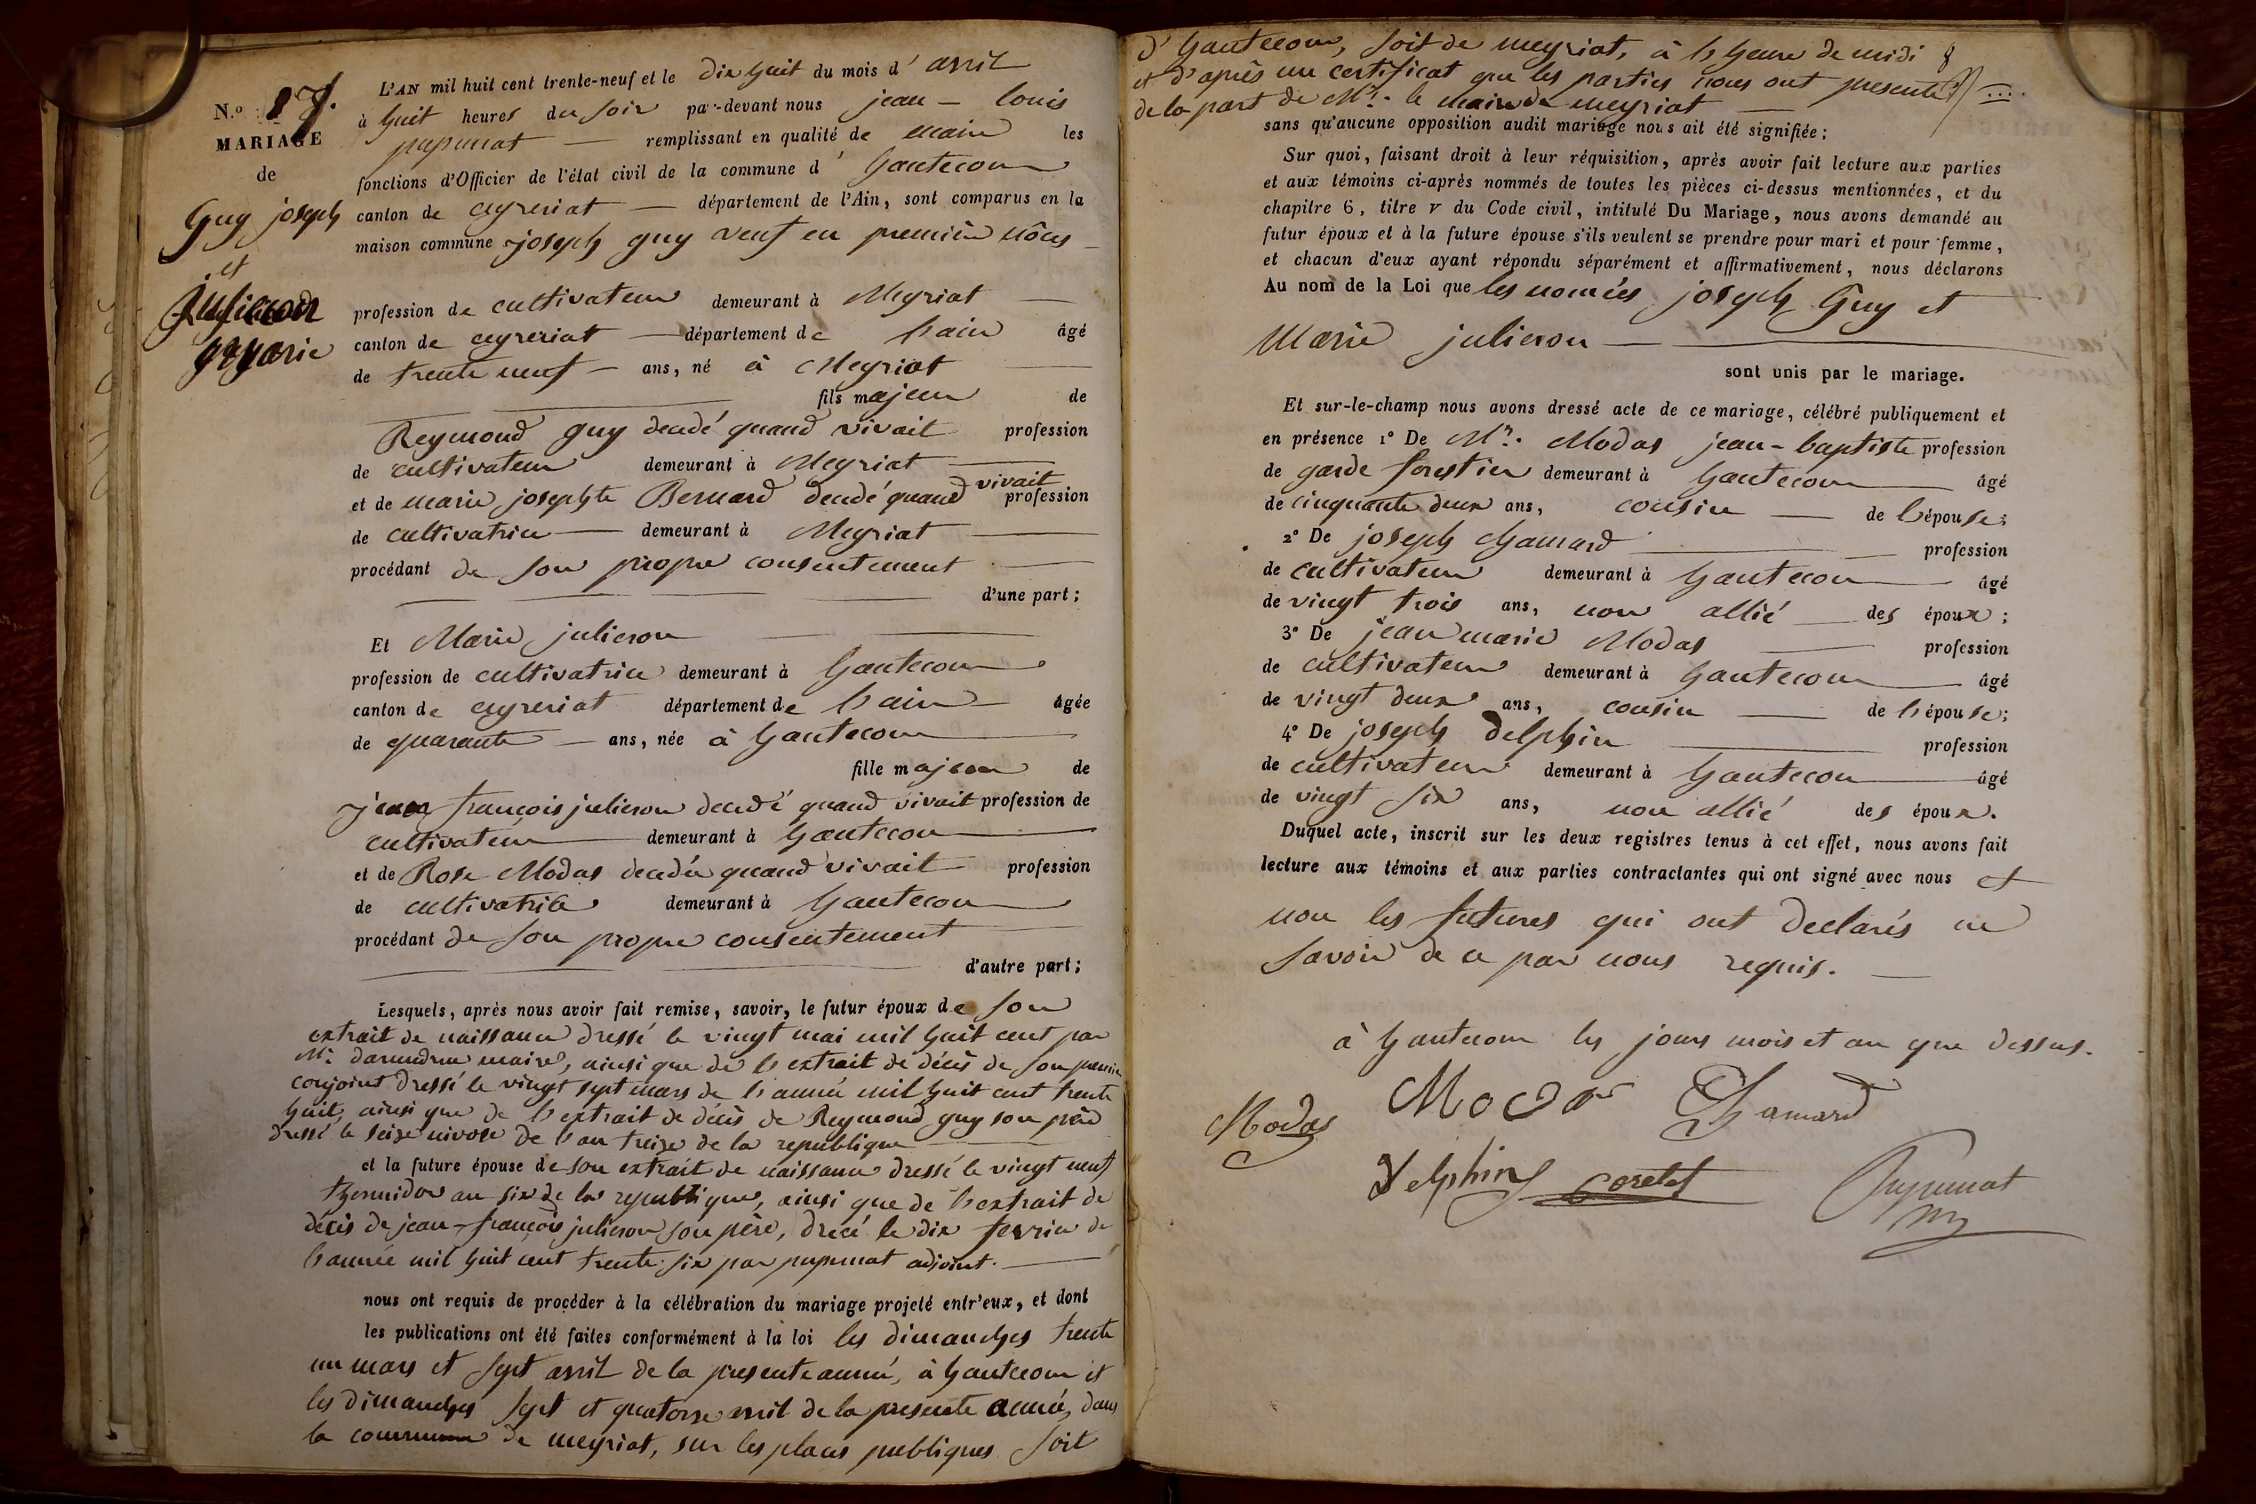 N.º 8
MARIAGE
de
Guy joseph
et
julieron
marie
L'AN mil huit cent trente-neuf et le dix huit du mois d' avril
à huit heures du soir par-devant nous jean - louis
pupunat — remplissant en qualité de maire les
fonctions d'Officier de l'état civil de la commune d' hautecour
canton de ceyzeriat — département de l'Ain, sont comparus en la
maison commune joseph guy veuf en première nôces
profession de cultivateur demeurant à Meyriat
canton de ceyzeriat — département de l'ain âgé
de trente neuf — ans, né à Meyriat
fils majeur de
Reymond guy decdé quand vivait profession
de cultivateur demeurant à Meyriat
et de marie josephte Bernard decdé quand vivait profession
de cultivatrice — demeurant à Meyriat
procédant de son propre consentement
d'une part;
Et Marie julieron
profession de cultivatrice demeurant à hautecour
canton de ceyzeriat département de l'ain âgée
de quarante — ans, née à hautecour
fille majeur de
jean françois julieron decdé quand vivait profession de
cultivateur demeurant à hautecour
et de Rose Modas decdée quand vivait profession
de cultivatrice demeurant à hautecour
procédant de son propre consentement
d'autre part;
Lesquels, après nous avoir fait remise, savoir, le futur époux de son
extrait de naissance dressé le vingt mai mil huit cent par
Mr maire, ainsi que de l'extrait de décès de son premier
conjoint dressé le vingt sept mars de l'année mil huit cent trente
huit, ainsi que de l'extrait de décès de Reymond guy son père
dressé le seize nivose de l'an treize de la republique
et la future épouse de son extrait de naissance dressé le vingt neuf
thermidor an six de la republique, ainsi que de l'extrait de
décès de jean - françois julieron son père, drecé le dix fevrier de
l'année mil huit cent trente six par pupunat adjoint.
nous ont requis de procéder à la célébration du mariage projeté entr'eux, et dont
les publications ont été faites conformément à la loi les dimanches trente
un mars et sept avril de la presente année, à hautecour et
les dimanches sept et quatorze avril de la presente année, dans
la commune de meyriat, sur les places publiques soit
d'hautecour, soit de meyriat, à l'heure de midi
et d'après un certificat que les parties nous ont presenté
de la part de Mr. le maire de meyriat
sans qu'aucune opposition audit mariage nous ait été signifiée;
Sur quoi, faisant droit à leur réquisition, après avoir fait lecture aux parties
et aux témoins ci-après nommés de toutes les pièces ci-dessus mentionnées, et du
chapitre 6, titre V du Code civil, intitulé Du Mariage, nous avons demandé au
futur époux et à la future épouse s'ils veulent se prendre pour mari et pour femme,
et chacun d'eux ayant répondu séparément et affirmativement, nous déclarons
Au nom de la Loi que les nomées joseph Guy et
Marie julieron
sont unis par le mariage.
Et sur-le-champ nous avons dressé acte de ce mariage, célébré publiquement et
en présence 1° De Mr. Modas jean - baptiste profession
de garde forestier demeurant à hautecour âgé
de cinquante deux ans, cousin — de l'épouse;
2° De joseph chamard profession
de cultivateur demeurant à hautecour âgé
de vingt trois ans, non allié — des époux;
3° De jean marie Modas profession
de cultivateur demeurant à hautecour âgé
de vingt deux ans, cousin — de l'épouse;
4° De joseph delphin profession
de cultivateur demeurant à hautecour âgé
de vingt six ans, non allié des époux.
Duquel acte, inscrit sur les deux registres tenus à cet effet, nous avons fait
lecture aux témoins et aux parties contractantes qui ont signé avec nous et
non les futures qui ont declarés ne
savoir de ce par nous requis.
à hautecour les jours mois et an que dessus.
Modas Modas Chamard
Delphin joseph Pupunat